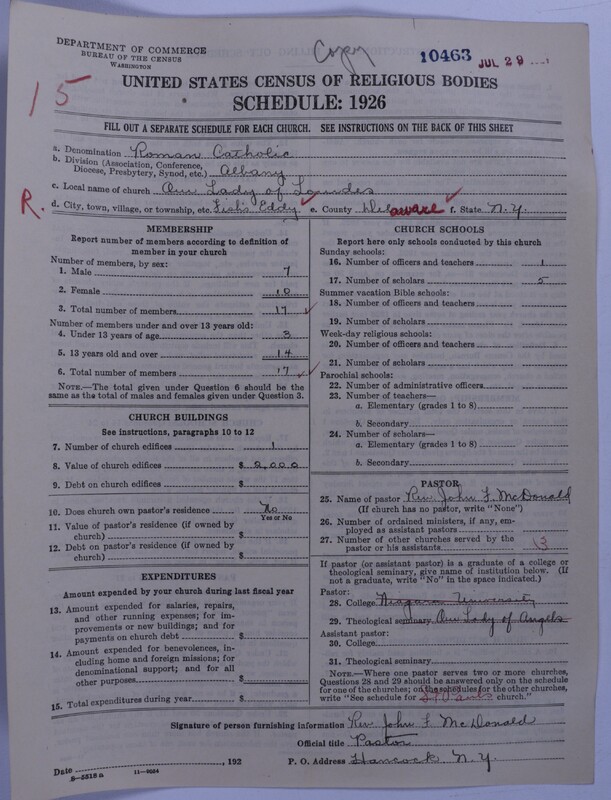 DEPARTMENT OF COMMERCE
BUREAU OF THE CENSUS
WASHINGTON
Copy
10463 JUL 29
15
UNITED STATES CENSUS OF RELIGIOUS BODIES
SCHEDULE: 1926
FILL OUT A SEPARATE SCHEDULE FOR EACH CHURCH. SEE INSTRUCTIONS ON THE BACK OF THIS SHEET
a. Denomination Roman Catholic
b. Division (Association, Conference, Diocese, Presbytery, Synod, etc.) Albany
c. Local name of church Our Lady of Lourdes
R. d. City, town, village, or township, etc. Fish's Eddy e. County Delaware f. State N.Y.
MEMBERSHIP
Report number of members according to definition of
member in your church
Number of members, by sex:
1. Male 7
2. Female 10
3. Total number of members 17
Number of members under and over 13 years old:
4. Under 13 years of age 3
5. 13 years old and over 14
6. Total number of members 17
NOTE.—The total given under Question 6 should be
same as the total of males and females given under Question 3.
CHURCH BUILDINGS
See instructions, paragraphs 10 to 12
7. Number of church edifices 1
8. Value of church edifices $ 2,000
9. Debt on church edifices $
10. Does church own pastor's residence? No
Yes or No
11. Value of pastor's residence (if owned by
church) $
12. Debt on pastor's residence (if owned by
church) $
EXPENDITURES
Amount expended by your church during last fiscal year
13. Amount expended for salaries, repairs,
and other running expenses; for im-
provements or new buildings; and for
payments on church debt $
14. Amount expended for benevolences, in-
cluding home and foreign missions; for
denominational support; and for all
other purposes $
15. Total expenditures during year $
CHURCH SCHOOLS
Report here only schools conducted by this church
Sunday schools:
16. Number of officers and teachers 1
17. Number of scholars 5
Summer vacation Bible schools:
18. Number of officers and teachers
19. Number of scholars
Week-day religious schools:
20. Number of officers and teachers
21. Number of scholars
Parochial schools:
22. Number of administrative officers
23. Number of teachers—
a. Elementary (grades 1 to 8)
b. Secondary
24. Number of scholars—
a. Elementary (grades 1 to 8)
b. Secondary
PASTOR
25. Name of pastor Rev. John F. McDonald
(If church has no pastor, write "None")
26. Number of ordained ministers, if any, em-
ployed as assistant pastors
27. Number of other churches served by the
pastor or his assistants 3
If pastor (or assistant pastor) is a graduate of a college or
theological seminary, give name of institution below. (If
not a graduate, write "No" in the space indicated.)
Pastor:
28. College Niagara University
29. Theological seminary Our Lady of Angels
Assistant pastor:
30. College
31. Theological seminary
NOTE.—Where one pastor serves two or more churches,
Questions 28 and 29 should be answered only on the schedule
for one of the churches; on the schedules for the other churches,
write "See schedule for St Paul's church."
Signature of person furnishing information Rev. John F. McDonald
Official title Pastor
Date , 192 P. O. Address Hancock N.Y.
8-5518 a 11-9024